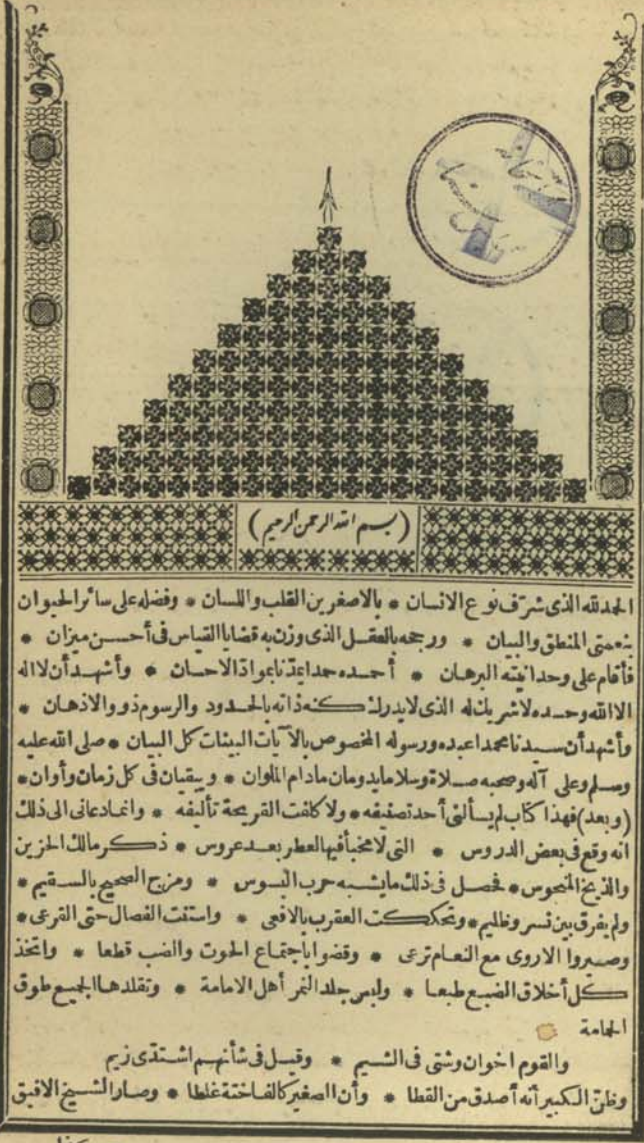 (بسم الله الرحمن الرحيم)
الحمد لله الذى شرّف نوع الانسان * بالاصغرين القلب واللسان * وفضله على سائر الحيوان
بنعمتى المنطق والبيان * ورجحه بالعقل الذى وزن به قضايا القياس فى أحسن ميزان *
فأقام على وحدانيته البرهان * أحمده حمدا يمدّنا بموادّ الاحسان * وأشهد أن لا اله
الا الله وحده لا شريك له الذى لا يدرك كنه ذاته بالحدود والرسوم ذوو الاذهان *
وأشهد أن سيدنا محمدا عبده ورسوله المخصوص بالآيات البينات كل البيان * صلى الله عليه
وسلم وعلى آله وصحبه صلاة وسلاما يدومان مادام الملوان * ويبقيان فى كل زمان وأوان *
(وبعد) فهذا كتاب لم يسألنى أحد تصنيفه * ولا كلفت القريحة تأليفه * وانما دعانى الى ذلك
انه وقع فى بعض الدروس * التى لا مخبأ فيها لعطر بعد عروس * ذكر مالك الحزين
والذيخ المنحوس * فحصل فى ذلك ما يشبه حرب البسوس * ومزج الصحيح بالسقيم *
ولم يفرق بين نسر وظليم * وتحككت العقرب بالافعى * واستنت الفصال حتى القرعى *
وصيروا الاروى مع النعام ترعى * وقضوا باجتماع الحوت والضب قطعا * واتخذ
كل أخلاق الضبع طبعا * ولبس جلد النمر أهل الامامة * وتقلدها الجميع طوق
الحمامة
والقوم اخوان وشتى فى الشيم * وقيل فى شأنهم اشتدّى زيم
وظنّ الكبير أنه أصدق من القطا * وأن الصغير كالفاختة غلطا * وصار الشيخ الافيق